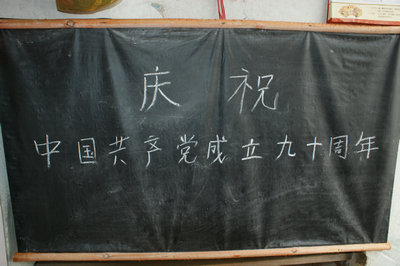 庆祝
中国共产党成立九十周年